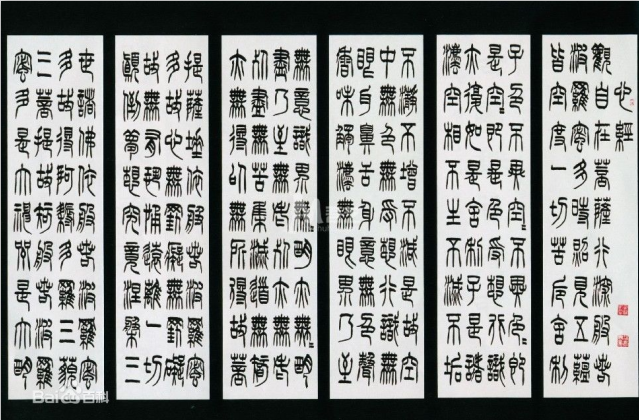 心經
觀自在菩薩行深般若
波羅蜜多時照見五蘊
皆空度一切苦厄舍利
子色不異空=不異色=即
是空=即是色受想行識
亦復如是舍利子是諸
灋空相不生不滅不垢
不瀞不增不減是故空
中無色無受想行識無
眼耳鼻舌身意無色聲
香味觸灋無眼界乃至
無意識界無=明亦無=明
盡乃至無老死亦無老死
盡無苦集滅道無智
亦無得以無所得故菩
提薩埵依般若波羅蜜
多故心無罣礙無罣礙
故無有恐怖遠離一切
顛倒夢想究竟涅槃三
世諸佛依般若波羅蜜
多故得阿耨多羅三藐
三菩提故知般若波羅
蜜多是大神咒是大明
Baidu百科